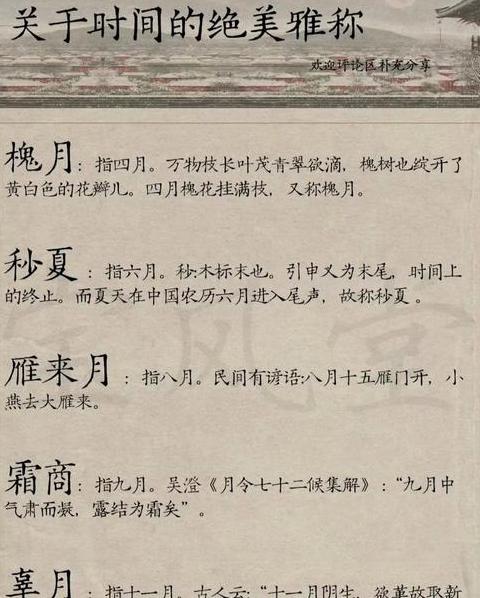 关于时间的绝美雅称
欢迎评论区补充分享
槐月：指四月。万物枝长叶茂青翠欲滴，槐树也绽开了
黄白色的花瓣儿。四月槐花挂满枝，又称槐月。
秒夏：指六月。秒:木标末也。引申义为末尾，时间上
的终止。而夏天在中国农历六月进入尾声，故称秒夏。
雁来月：指八月。民间有谚语:八月十五雁门开，小
燕去大雁来。
霜商：指九月。吴澄《月令七十二候集解》：“九月中
气肃而凝，露结为霜矣”。
辜月：指十一月。古人云:“十一月阴生，欲革故取新